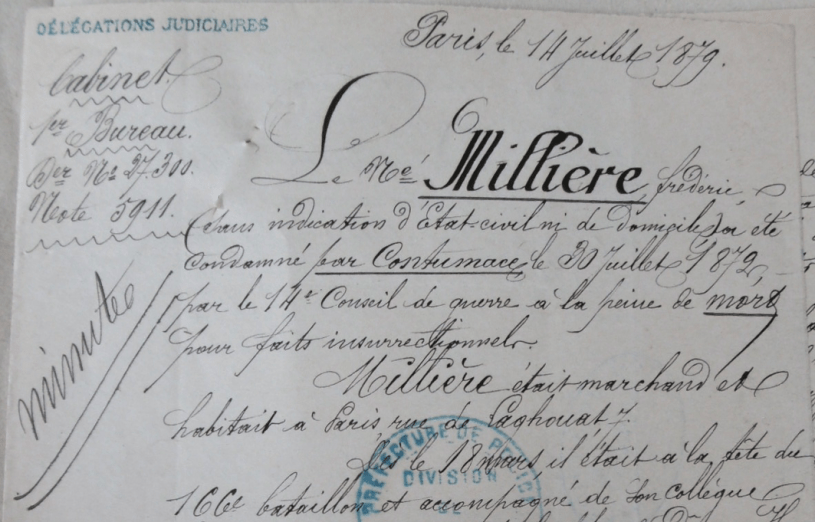 DÉLÉGATIONS JUDICIAIRES
Paris, le 14 Juillet 1879.
Cabinet
1er Bureau.
Der No 27.300.
Note 5911.
minute
Le Né Millière, frédéric,
(sans indication d'Etat-civil ni de domicile) a été
condamné par Contumace, le 30 Juillet 1872,
par le 14e Conseil de guerre à la peine de mort
pour faits insurrectionnels.
Millière était marchand et
habitait à Paris rue de Laghouat 7.
Dès le 18 mars il était à la tête du
166e bataillon et accompagné de son collègue
PRÉFECTURE DE POLICE
DIVISION